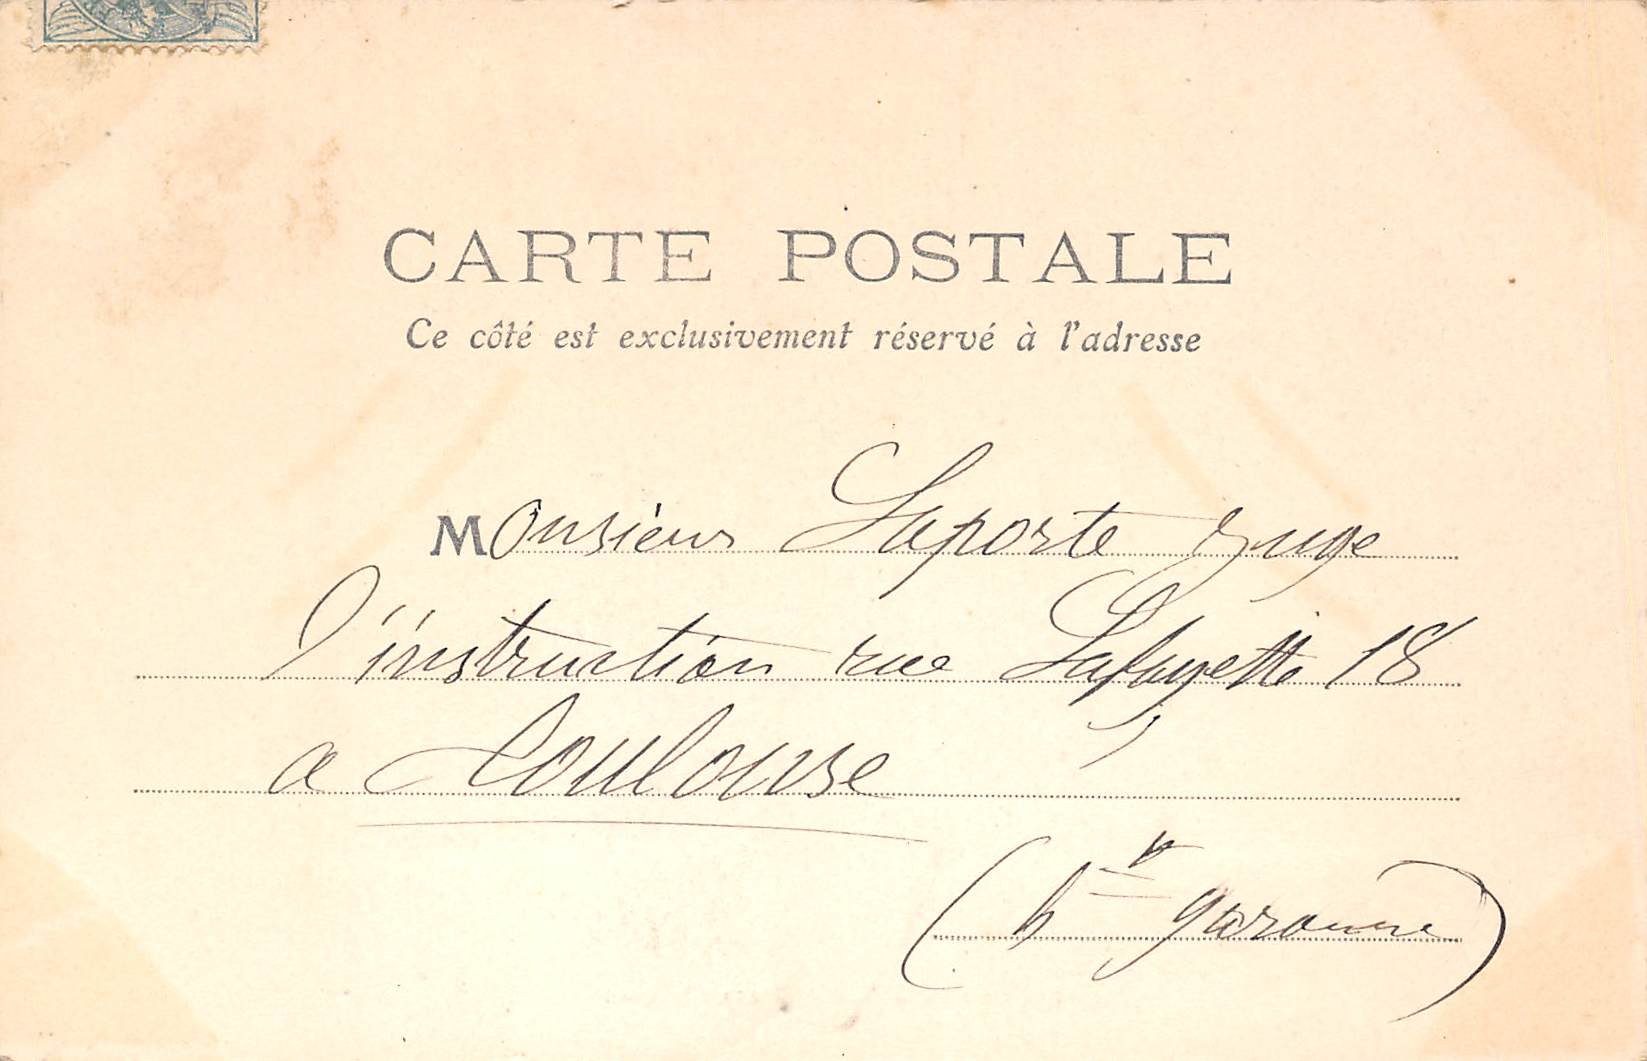 CARTE POSTALE
Ce côté est exclusivement réservé à l'adresse
Monsieur Laporte Juge
d'instruction rue Lafayette 18
a Toulouse
(hte garonne)